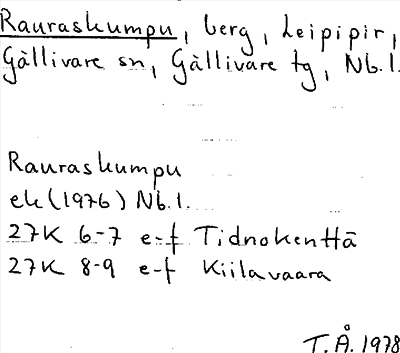 Rauraskumpu, berg, Leipipir,
Gällivare sn, Gällivare tg, Nb.l.
Rauraskumpu
ek (1976) Nb.l.
27K 6-7 e-f Tidnokenttä
27K 8-9 e-f Kiilavaara
T.Å. 1978